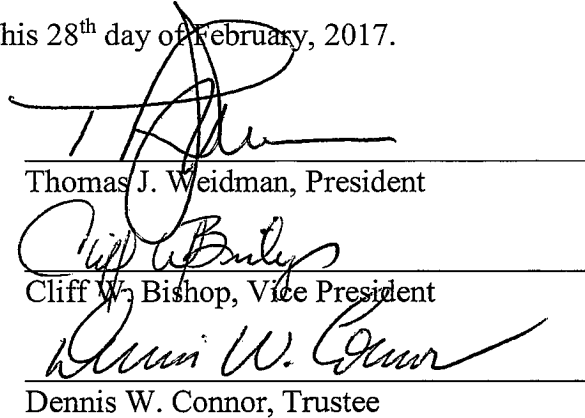 his 28th day of February, 2017.
Thomas J. Weidman, President
Cliff W. Bishop
Cliff W. Bishop, Vice President
Dennis W. Connor
Dennis W. Connor, Trustee